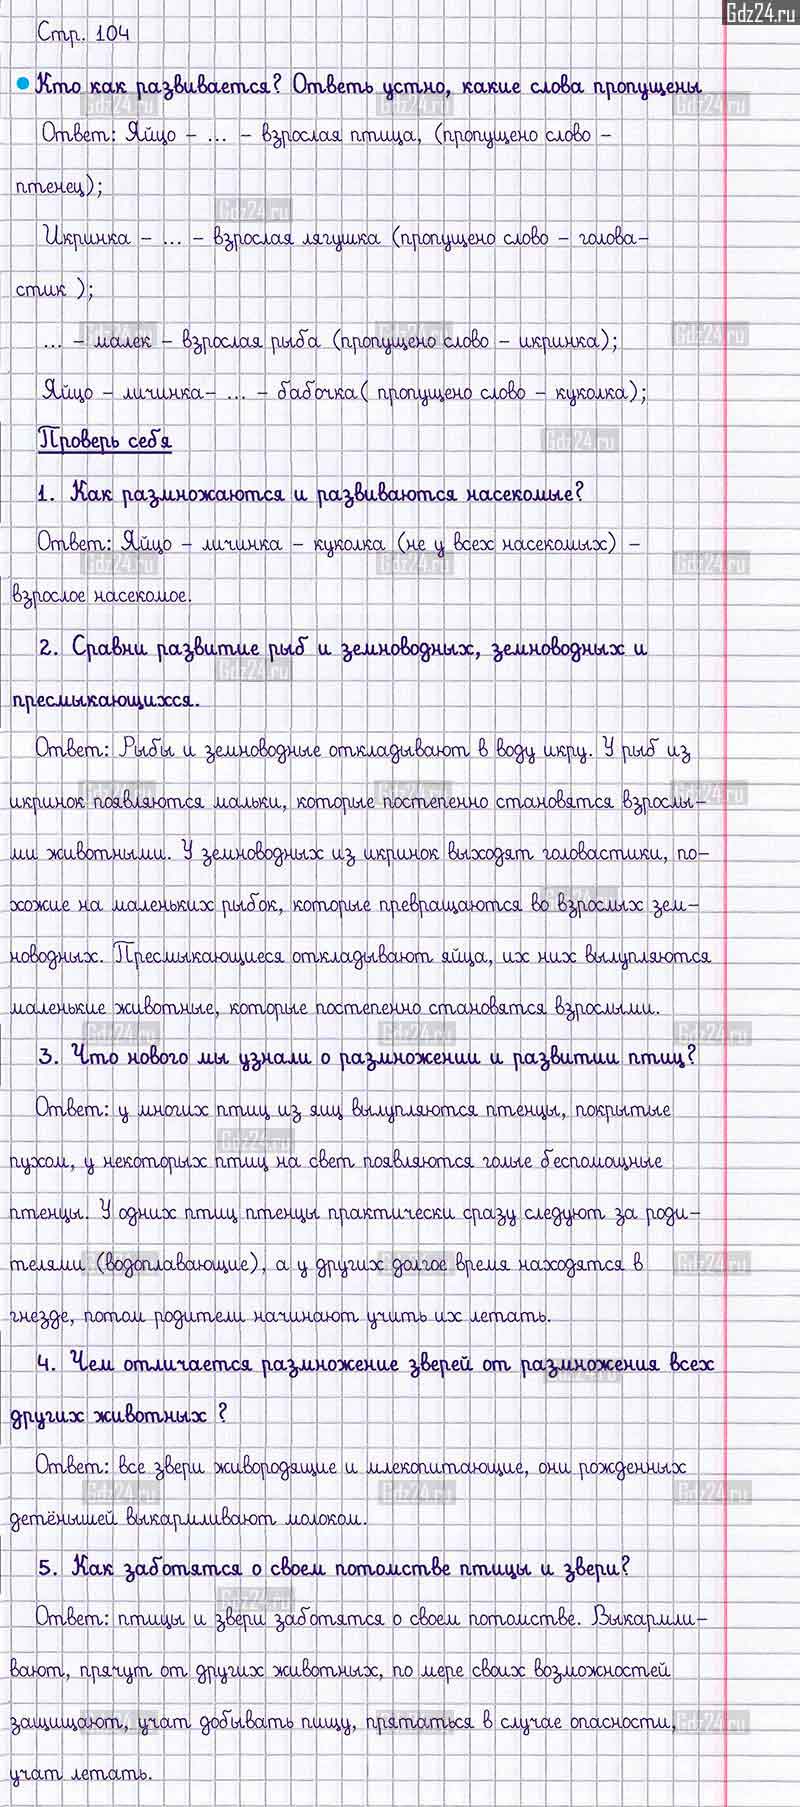 Gdz24.ru
Стр. 104
Кто как развивается? Ответь устно, какие слова пропущены
Ответ: Яйцо – ... – взрослая птица, (пропущено слово –
птенец);
Икринка – ... – взрослая лягушка (пропущено слово – голова–
стик );
... – малек – взрослая рыба (пропущено слово – икринка);
Яйцо – личинка– ... – бабочка( пропущено слово – куколка);
Проверь себя
1. Как размножаются и развиваются насекомые?
Ответ: Яйцо – личинка – куколка (не у всех насекомых) –
взрослое насекомое.
2. Сравни развитие рыб и земноводных, земноводных и
пресмыкающихся.
Ответ: Рыбы и земноводные откладывают в воду икру. У рыб из
икринок появляются мальки, которые постепенно становятся взрослы–
ми животными. У земноводных из икринок выходят головастики, по–
хожие на маленьких рыбок, которые превращаются во взрослых зем–
новодных. Пресмыкающиеся откладывают яйца, их них вылупляются
маленькие животные, которые постепенно становятся взрослыми.
3. Что нового мы узнали о размножении и развитии птиц?
Ответ: у многих птиц из яиц вылупляются птенцы, покрытые
пухом, у некоторых птиц на свет появляются голые беспомощные
птенцы. У одних птиц птенцы практически сразу следуют за роди–
телями (водоплавающие), а у других долгое время находятся в
гнезде, потом родители начинают учить их летать.
4. Чем отличается размножение зверей от размножения всех
других животных ?
Ответ: все звери живородящие и млекопитающие, они рожденных
детёнышей выкармливают молоком.
5. Как заботятся о своем потомстве птицы и звери?
Ответ: птицы и звери заботятся о своем потомстве. Выкармли–
вают, прячут от других животных, по мере своих возможностей
защищают, учат добывать пищу, прятаться в случае опасности,
учат летать.